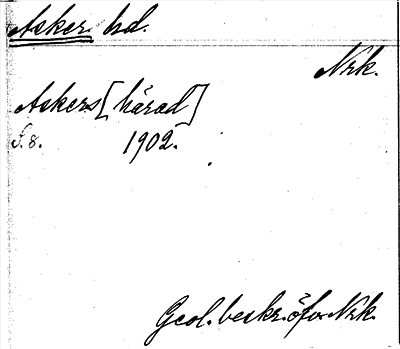 Asker hd.
Nrk.
Askers [härad]
S. 8. 1902.
Geol. beskr. öfver Nrk.